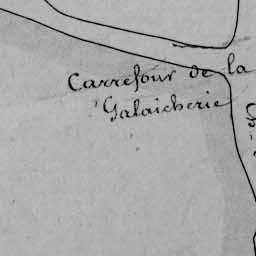 Carrefour de la
Galaicherie